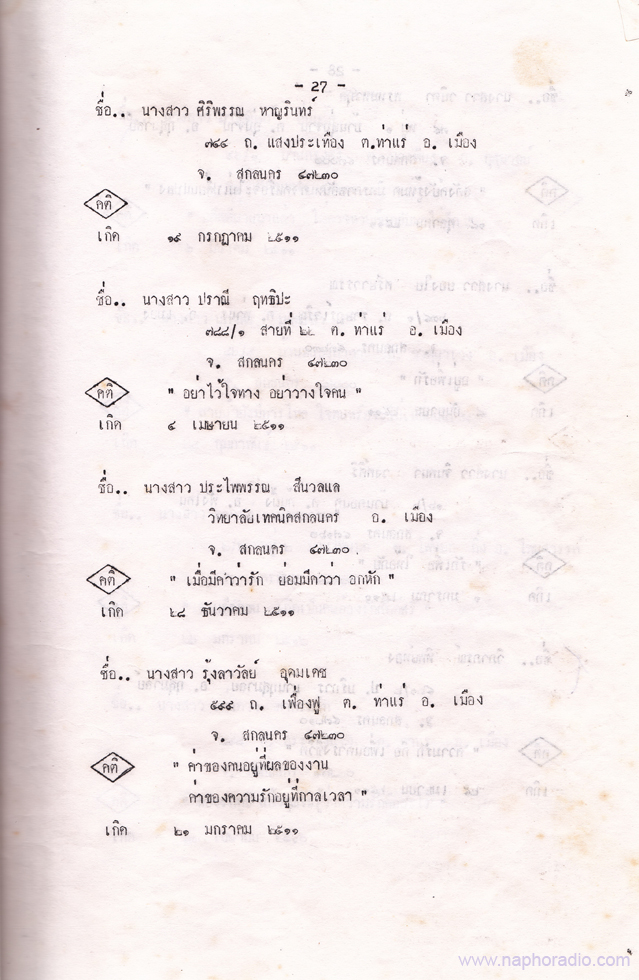 - 27 -
ชื่อ.. นางสาว ศิริพรรณ หาญรินทร์
๗๔๔ ถ. แสงประเทือง ต.ท่าแร่ อ. เมือง
จ. สกลนคร ๔๗๒๓๐
คติ
เกิด ๑๙ กรกฎาคม ๒๕๑๑
ชื่อ.. นางสาว ปราณี ฤทธิปะ
๗๘๘/๑ สายที่ ๒๒ ต. ท่าแร่ อ. เมือง
จ. สกลนคร ๔๗๒๓๐
คติ " อย่าไว้ใจทาง อย่าวางใจคน "
เกิด ๔ เมษายน ๒๕๑๑
ชื่อ.. นางสาว ประไพพรรณ สีนวลแล
วิทยาลัยเทคนิคสกลนคร อ. เมือง
จ. สกลนคร ๔๗๒๓๐
คติ " เมื่อมีคำว่ารัก ย่อมมีคำว่า อกหัก "
เกิด ๒๘ ธันวาคม ๒๕๑๑
ชื่อ.. นางสาว รุ้งลาวัลย์ อุดมเดช
๕๔๙ ถ. เฟื่องฟู ต. ท่าแร่ อ. เมือง
จ. สกลนคร ๔๗๒๓๐
คติ " ค่าของคนอยู่ที่ผลของงาน
ค่าของความรักอยู่ที่กาลเวลา "
เกิด ๒๑ มกราคม ๒๕๑๑
www.naphoradio.com